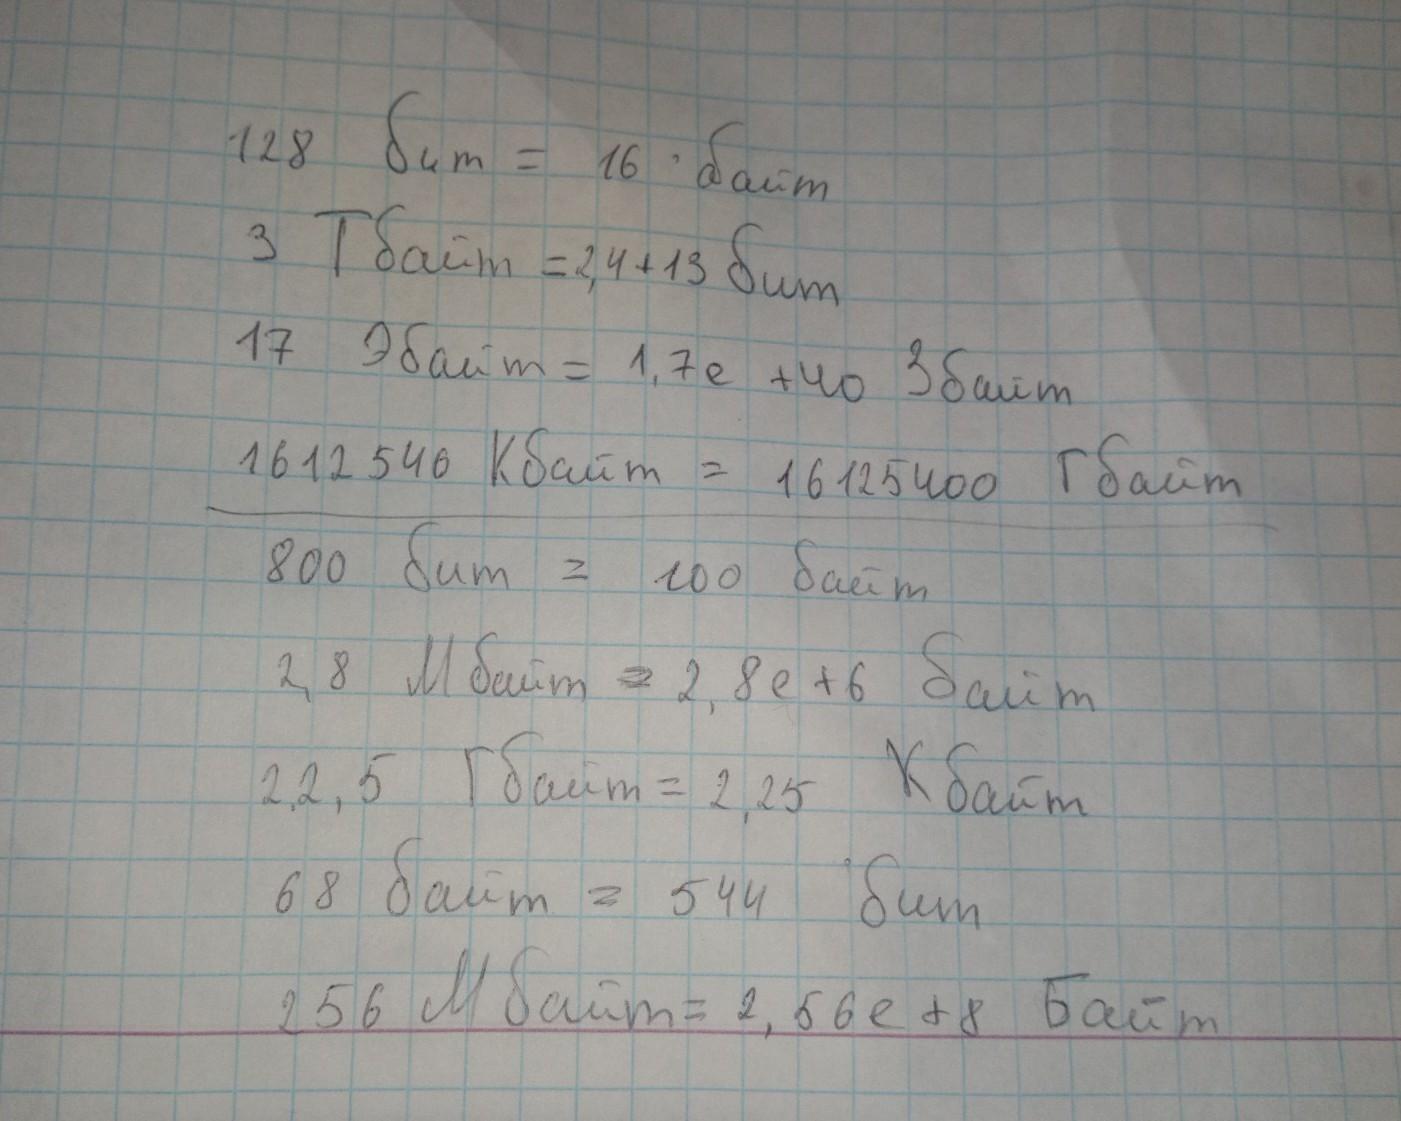 128 бит = 16 байт
3 Тбайт = 2,4+13 бит
17 Эбайт = 1,7e +40 Збайт
1612546 Кбайт = 16125400 Гбайт
800 бит = 100 байт
2,8 Мбайт = 2,8e+6 байт
22,5 Гбайт = 2,25 Кбайт
68 байт = 544 бит
256 Мбайт = 2,56e+8 Байт